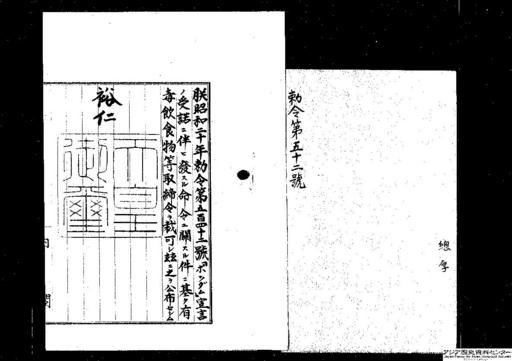 勅令第五十二號
總
朕昭和二十年勅令第五百四十二號「ポツダム」宣言
ノ受諾ニ伴ヒ發スル命令ニ關スル件ニ基ク有
毒飲食物等取締令ヲ裁可シ玆ニ之ヲ公布セシム
裕仁
天皇
御璽
内
閣
アジア歴史資料センター
Japan Center for Asian Historical Records